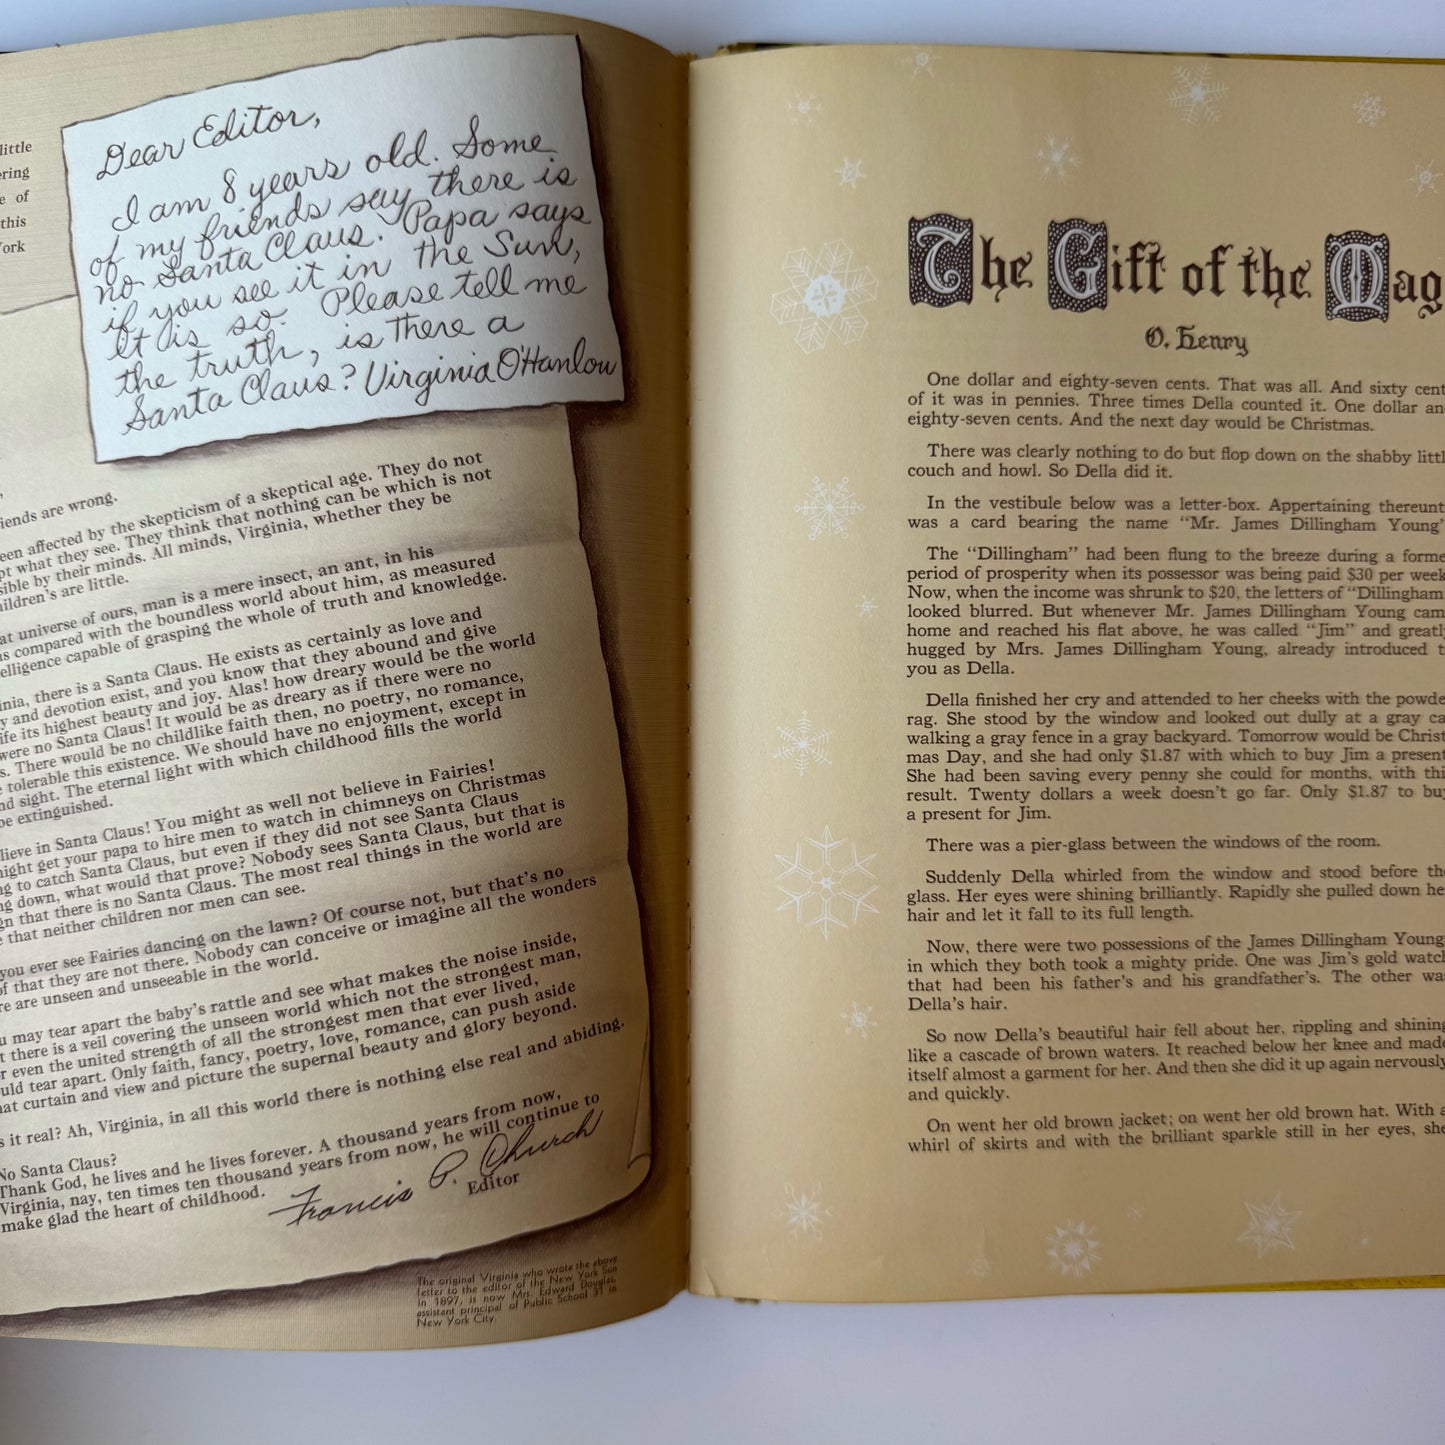 little
ering
e of
this
ork
Dear Editor,
I am 8 years old. Some
of my friends say there is
no Santa Claus. Papa says
if you see it in the Sun,
it is so. Please tell me
the truth, is there a
Santa Claus? Virginia O'Hanlon
iends are wrong.
een affected by the skepticism of a skeptical age. They do not
pt what they see. They think that nothing can be which is not
sible by their minds. All minds, Virginia, whether they be
ildren's are little.
at universe of ours, man is a mere insect, an ant, in his
as compared with the boundless world about him, as measured
elligence capable of grasping the whole of truth and knowledge.
inia, there is a Santa Claus. He exists as certainly as love and
y and devotion exist, and you know that they abound and give
ife its highest beauty and joy. Alas! how dreary would be the world
were no Santa Claus! It would be as dreary as if there were no
s. There would be no childlike faith then, no poetry, no romance,
e tolerable this existence. We should have no enjoyment, except in
nd sight. The eternal light with which childhood fills the world
be extinguished.
lieve in Santa Claus! You might as well not believe in Fairies!
night get your papa to hire men to watch in chimneys on Christmas
ng to catch Santa Claus, but even if they did not see Santa Claus
ng down, what would that prove? Nobody sees Santa Claus, but that is
gn that there is no Santa Claus. The most real things in the world are
e that neither children nor men can see.
you ever see Fairies dancing on the lawn? Of course not, but that's no
of that they are not there. Nobody can conceive or imagine all the wonders
re are unseen and unseeable in the world.
u may tear apart the baby's rattle and see what makes the noise inside,
t there is a veil covering the unseen world which not the strongest man,
r even the united strength of all the strongest men that ever lived,
uld tear apart. Only faith, fancy, poetry, love, romance, can push aside
hat curtain and view and picture the supernal beauty and glory beyond.
s it real? Ah, Virginia, in all this world there is nothing else real and abiding.
No Santa Claus?
Thank God, he lives and he lives forever. A thousand years from now,
Virginia, nay, ten times ten thousand years from now, he will continue to
make glad the heart of childhood.
Francis P. Church
Editor
The original Virginia who wrote the above
letter to the editor of the New York Sun
in 1897, is now Mrs. Edward Douglas,
assistant principal of Public School 31 in
New York City.
The Gift of the Mag
O. Henry
One dollar and eighty-seven cents. That was all. And sixty cent
of it was in pennies. Three times Della counted it. One dollar an
eighty-seven cents. And the next day would be Christmas.
There was clearly nothing to do but flop down on the shabby littl
couch and howl. So Della did it.
In the vestibule below was a letter-box. Appertaining thereunt
was a card bearing the name "Mr. James Dillingham Young"
The "Dillingham" had been flung to the breeze during a forme
period of prosperity when its possessor was being paid $30 per week
Now, when the income was shrunk to $20, the letters of "Dillingham
looked blurred. But whenever Mr. James Dillingham Young cam
home and reached his flat above, he was called "Jim" and greatl
hugged by Mrs. James Dillingham Young, already introduced t
you as Della.
Della finished her cry and attended to her cheeks with the powde
rag. She stood by the window and looked out dully at a gray ca
walking a gray fence in a gray backyard. Tomorrow would be Christ
mas Day, and she had only $1.87 with which to buy Jim a present
She had been saving every penny she could for months, with thi
result. Twenty dollars a week doesn't go far. Only $1.87 to buy
a present for Jim.
There was a pier-glass between the windows of the room.
Suddenly Della whirled from the window and stood before the
glass. Her eyes were shining brilliantly. Rapidly she pulled down he
hair and let it fall to its full length.
Now, there were two possessions of the James Dillingham Young
in which they both took a mighty pride. One was Jim's gold watch
that had been his father's and his grandfather's. The other wa
Della's hair.
So now Della's beautiful hair fell about her, rippling and shining
like a cascade of brown waters. It reached below her knee and made
itself almost a garment for her. And then she did it up again nervously
and quickly.
On went her old brown jacket; on went her old brown hat. With a
whirl of skirts and with the brilliant sparkle still in her eyes, she